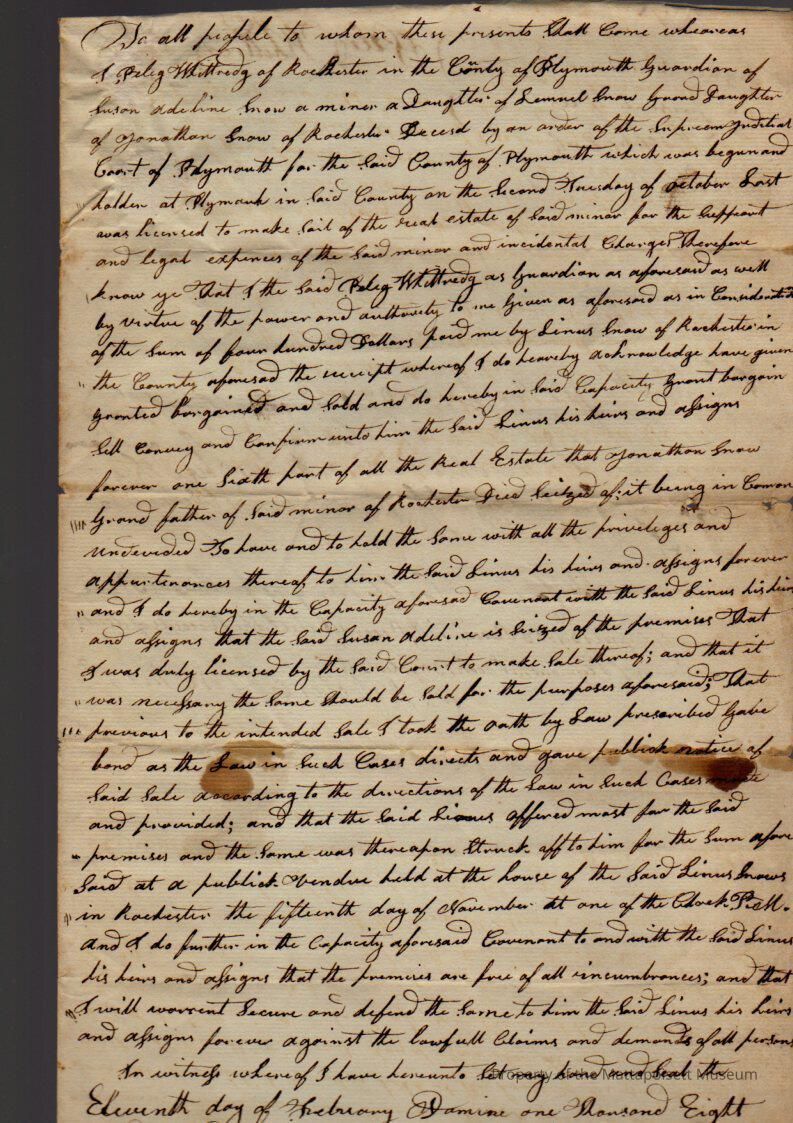 To all people to whom these presents Shall Come whereas
I Peleg Whittredg of Rochester in the County of Plymouth Guardian of
Susan Adeline Snow a minor a Daughter of Lemuel Snow Grand Daughter
of Jonathan Snow of Rochester Decesd by an order of the Supreem Juditial
Coort of Plymouth for the Said County of Plymouth which was begun and
holden at Plymouth in Said County on the Second Tuesday of october Last
was licensed to make Sail of the real estate of Said minor for the Support
and legal expences of the Said minor and incidental Charges Therefore
know ye That I the Said Peleg Whittredg as Guardian as aforesaid as well
by virtue of the power and authority to me Given as aforesaid as in Consideration
of the Sum of four hundred Dollars paid me by Linus Snow of Rochester in
the County aforesad the receipt whereof I do heareby acknowledge have given
granted bargained and Sold and do hereby in Said Capacity Grant bargain
Sell Convey and Confirm unto him the Said Linus his heirs and assigns
forever one Sixth part of all the Real Estate that Jonathan Snow
Grand father of Said minor of Rochester Died Seitzed of: it being in Comon
undevided To have and to hold the Same with all the priveleges and
appurtenances thereof to him the Said Linus his heirs and assigns forever
and I do hereby in the Capacity aforesad Covenant with the Said Linus his heirs
and assigns that the Said Susan Adeline is Seizged of the premises That
I was duly licensed by the Said Court to make Sale thereof; and that it
was necessary the Same Should be Sold for the purposes aforesaid; That
previous to the intended Sale I took the oath by Law prescribed Gave
bond as the Law in Such Cases directs and gave publick notice of
Said Sale according to the directions of the Law in Such Cases made
and provided; and that the Said Linus offered most for the Said
premises and the Same was thereupon Struck off to him for the Sum afore
Said at a publick Vendue held at the house of the Said Linus Snows
in Rochester the fifteenth day of November at one of the Clock P.M.
and I do further in the Capacity aforesaid Covenant to and with the Said Linus
his heirs and assigns that the premises are free of all incumbrances; and that
I will worrent Secure and defend the Same to him the Said Linus his heirs
and assigns forever against the lawfull Claims and demands of all persons
In witness whereof I have hereunto Set my hand and Seal the
Property of the Mattapoisett Museum
Eleventh day of February Domine one Thousand Eight